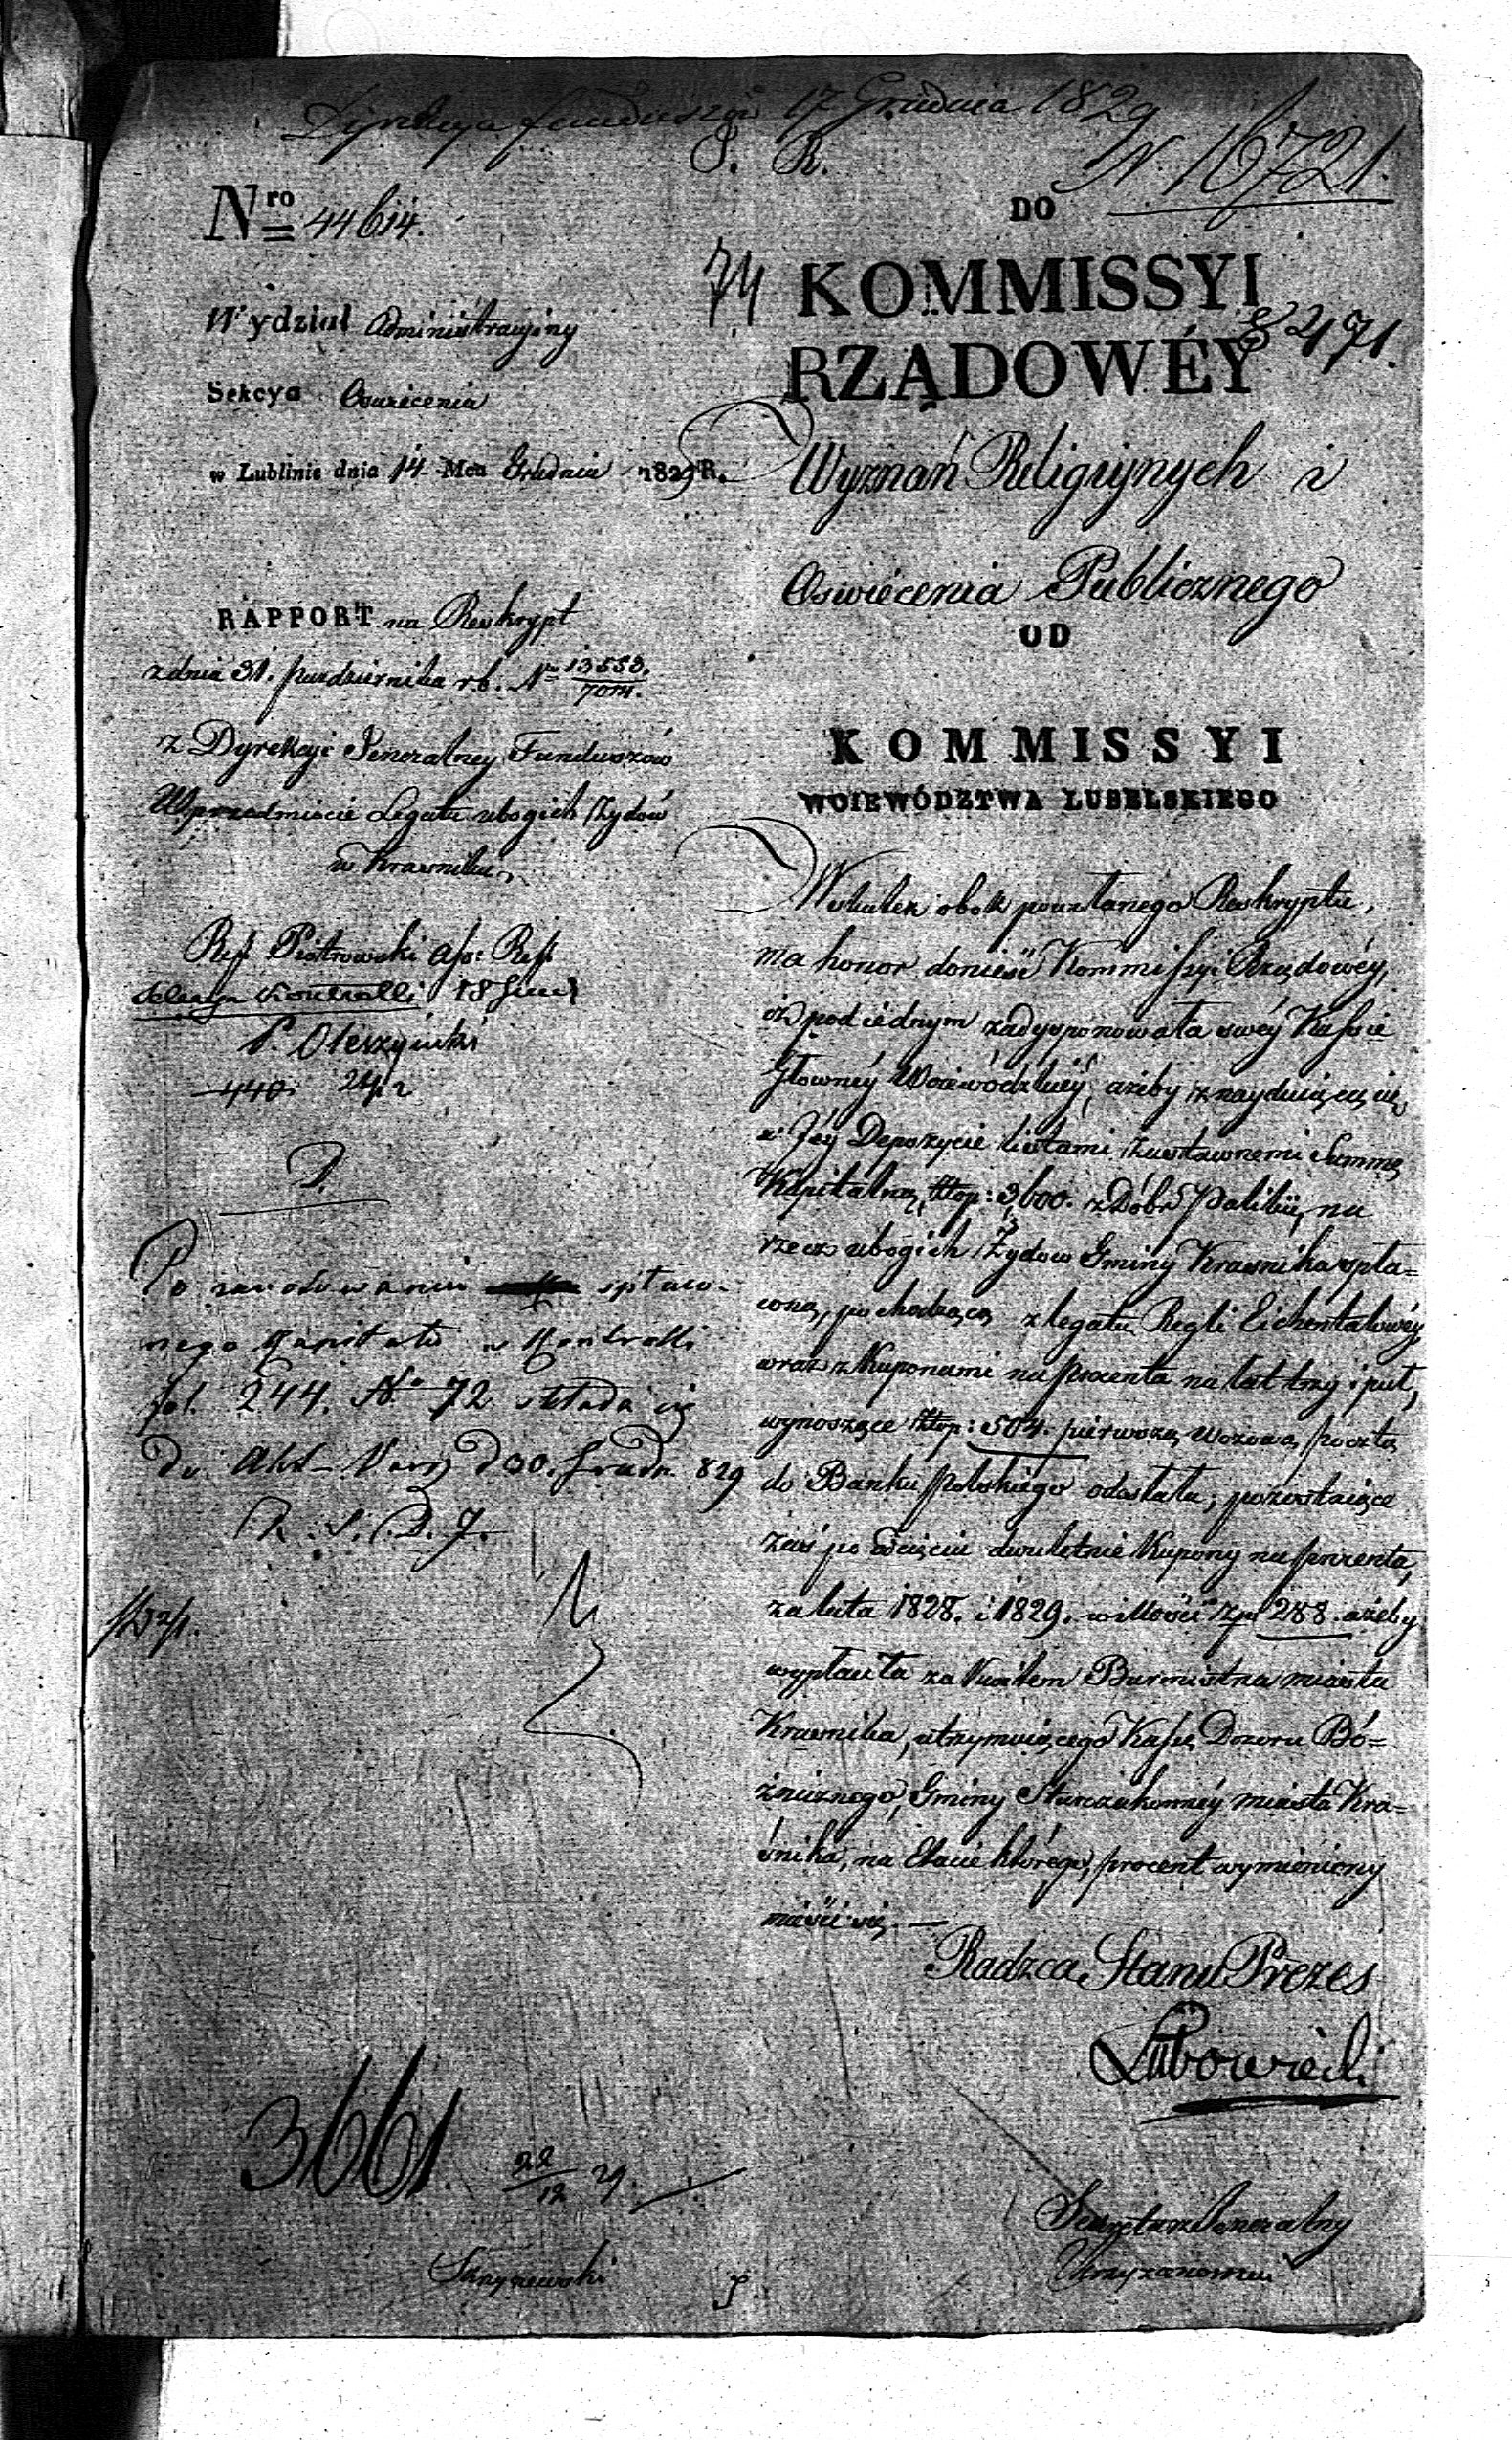 Dyrekcya funduszów 17 Grudnia 1829
S. R.
N. 16721.
Nro 44614.
DO
74
KOMMISSYI
8471.
Wydział Administracyjny
RZĄDOWÉY
Sekcya Oswiecenia
w Lublinie dnia 14 Mca Grudnia 1829 R.
Wyznań Religijnych i
Oswiécenia Publicznego
OD
KOMMISSYI
WOIEWÓDZTWA LUBELSKIEGO
RAPPORT na Reskrypt
z dnia 31. Pazdziernika r.b. Nro 13553./7014.
z Dyrekcyi Generalney Funduszów
W przedmiocie Legatu ubogich Żydów
w Krasniku.
Ref Piotrowski
Sekcya Kontrolli 18
P. Oleszyński
440.
D.
Po zanotowaniu spłaco-
nego Kapitału w Kontrolli
fol. 244. No 72 składa się
Do Akt d 30. Grudn. 829
Wskutek obok powołanego Reskryptu,
ma honor donieść Kommissyi Rządowéy,
iż pod iednym zadysponowała swéy Kassie
Głównéy Woiewódzkiéy, ażeby znayduiącą się
w Jéy Depozycie listami Zastawnemi Summę
Kapitalną, Złop: 3,600. z Dóbr Palikii, na
rzecz ubogich Żydow Gminy Krasnika spła=
coną, pochodzącą z legatu Regli Eichentalowéy
wraz z Kuponami na procenta na lat trzy i pół,
wynoszące Złop: 504. pierwszą wozową pocztą
do Banku polskiego odesłała; pozostaiące
zaś po odcięciu dwuletnie Kupony na procenta,
za lata 1828. i 1829. w ilości Złp 288. ażeby
wypłaciła za kwitem Burmistrza miasta
Krasnika, utrzymuiącego Kassę Dozoru Bó=
żniczego, Gminy Starozakonnéy miasta Kra=
śnika, na Etacie którego, procent wymieniony
mieści się. —
Radzca Stanu Prezes
Lubowiecki
3661.
22/12 29.
Sekretarz Generalny